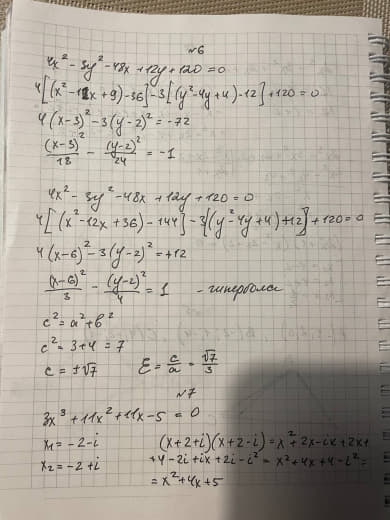 №6
4x² - 3y² - 48x + 12y + 120 = 0
4[(x² - 12x + 9) - 36] - 3[(y² - 4y + 4) - 12] + 120 = 0
4(x-3)² - 3(y-2)² = -72
(x-3)²/18 - (y-2)²/24 = -1
4x² - 3y² - 48x + 12y + 120 = 0
4[(x² - 12x + 36) - 144] - 3[(y² - 4y + 4) + 12] + 120 = 0
4(x-6)² - 3(y-2)² = +12
(x-6)²/3 - (y-2)²/4 = 1 - гипербола
c² = a² + b²
c² = 3 + 4 = 7
c = ±√7 Ɛ = c/a = √7/3
№7
3x³ + 11x² + 11x - 5 = 0
x₁ = -2 - i (x+2+i)(x+2-i) = x² + 2x - ix + 2x +
x₂ = -2 + i + 4 - 2i + ix + 2i - i² = x² + 4x + 4 - i² =
= x² + 4x + 5